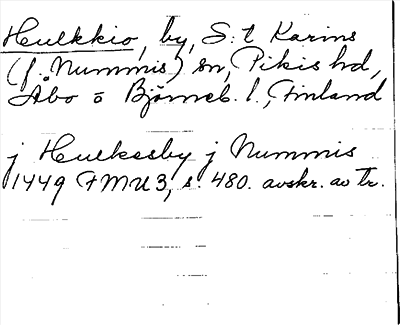 Hulkkio, by, S:t Karins
(f. Nummis) sn, Pikis hd,
Åbo o Björneb. l., Finland
j Hulkesby j Nummis
1449 FMU 3, s. 480. avskr. av tr.